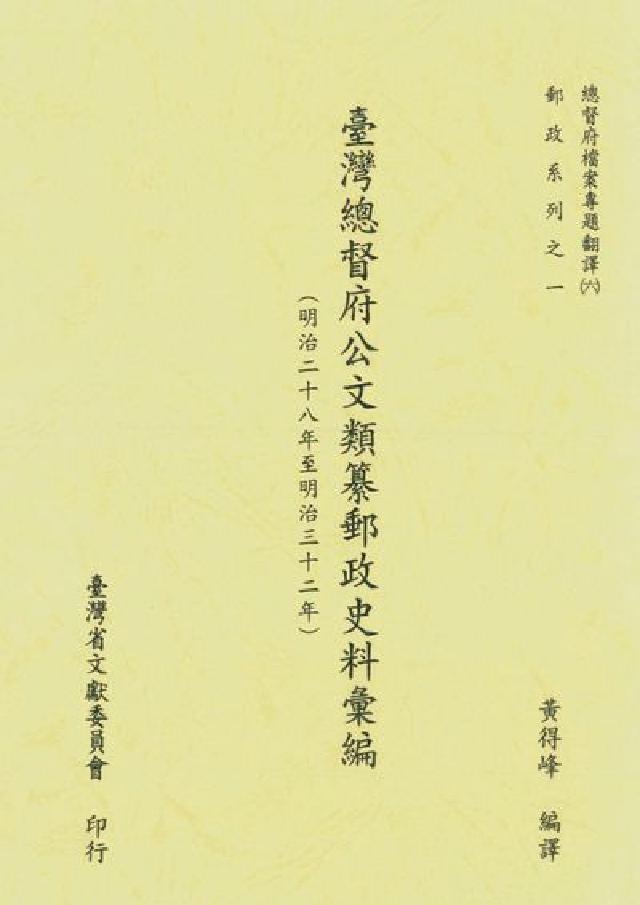 總督府檔案專題翻譯㈥
郵政系列之一
臺灣總督府公文類纂郵政史料彙編
（明治二十八年至明治三十二年）
黃得峰 編譯
臺灣省文獻委員會 印行